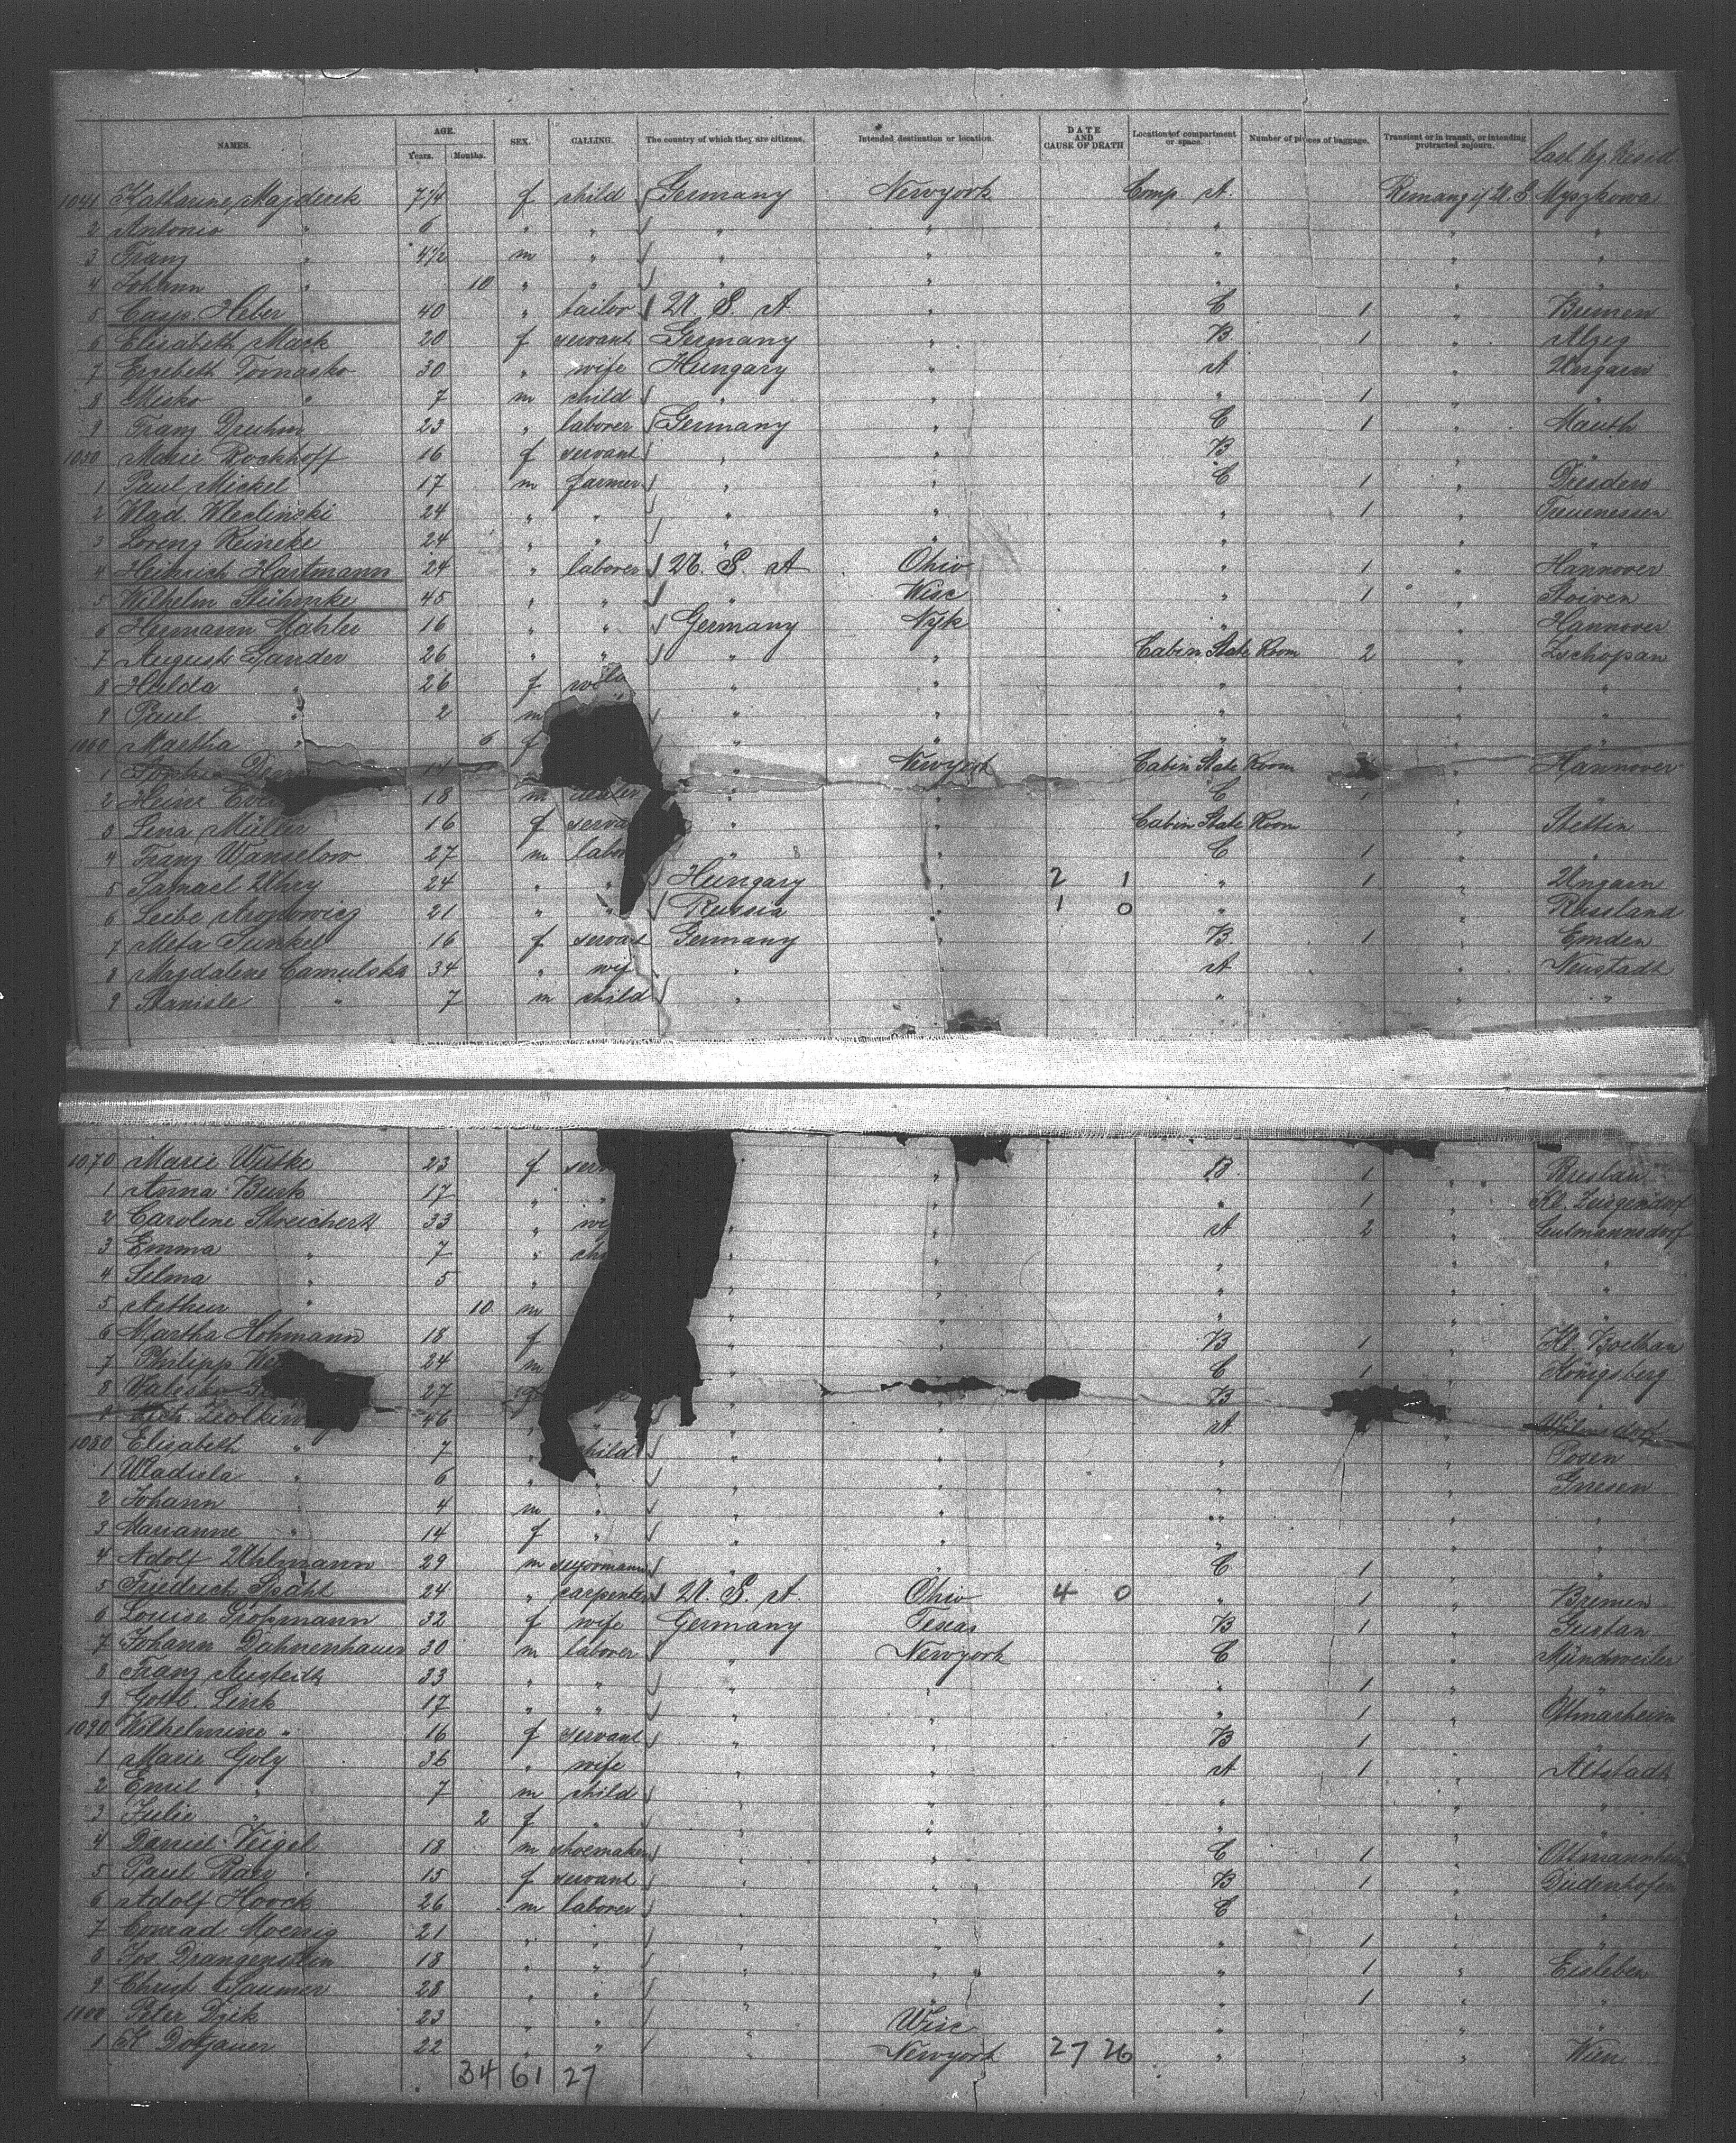 NAMES. AGE. Years. Months. SEX. CALLING. The country of which they are citizens. Intended destination or location. DATE AND CAUSE OF DEATH Location of compartment or space. Number of pieces of baggage. Transient or in transit, or intending protracted sojourn. Last leg. Resid
1041 Katharine Majderek 7 1/4 f child Germany Newyork Comp. A. Remang if U S Myszkowa
2 Antonio " 6 " " " " " " "
3 Franz " 4 1/2 m " " " " " "
4 Johann " 10 " " " " " " "
5 Casp. Heber 40 " tailor U. S. A " C 1 " Bremen
6 Elisabeth Mark 20 f servant Germany " B 1 " Alzey
7 Erzebeth Tomasko 30 " wife Hungary " A " Ungarn
8 Misko " 7 m child " " " 1 " "
9 Franz Druhm 23 " laborer Germany " C 1 " Mauth
1050 Marie Rockhoff 16 f servant " " B " "
1 Paul Mickel 17 m farmer " " C 1 " Dresden
2 Wlad. Weclinski 24 " " " " " 1 "
3 Lorenz Reineke 24 " " " " " " "
4 Heinrich Hartmann 24 " laborer U. S. A Ohio " 1 " Hannover
5 Wilhelm Stühmke 45 " " " Wisc " 1 "
6 Hermann Mahler 16 " " Germany Nyk " " Hannover
7 August Gander 26 " " " " Cabin State Room 2 " Zschopau
8 Hulda " 26 f wife " " " " "
9 Paul " 2 m " " " " "
1060 Martha " 6 f " " " "
1 Sophie 14 " Newyork Cabin State Room " Hannover
2 Heinr 18 m dealer " " C 1 " "
3 Lena Müller 16 f serva " " Cabin State Room " Stettin
4 Franz Wanselow 27 m labor " " C 1 " "
5 Samael Uhry 24 " " Hungary " 2 1 " 1 " Ungarn
6 Leibe Aronowicz 21 " " Russia " 1 0 " " Russland
7 Meta Sunkel 16 f servant Germany " B 1 " Emden
8 Magdalene Camulska 34 " wif " " A " Neustadt
9 Stanisle " 7 m child " " " " "
1070 Marie Wutke 23 f serv " " B 1 " Breslau
1 Anna Burk 17 " " " " " 1 "
2 Caroline Streichert 33 " wif " " A 2 " Leutmannsdorf
3 Emma " 7 " chi " " " " "
4 Selma " 5 " " " " " "
5 Arthur " 10 m " " " " "
6 Martha Hohmann 18 f " " B 1 "
7 Philipp We 24 m " " C 1 " Königsberg
8 Valeska 27 " B " "
9 46 " " " A "
1080 Elisabeth " 7 " child " " " " Posen
1 Wladisla " 6 " " " " " " Gnesen
2 Johann " 4 m " " " " " "
3 Marianne " 14 f " " " " " "
4 Adolf Uhlmann 29 m " " C 1 " "
5 Friedrich Spaht 24 " carpenter U. S. A. Ohio 4 0 " 1 " Bremen
6 Louise Grohmann 32 f wife Germany Texas B 1 " Gustan
7 Johann Dahnenhauer 30 m laborer " Newyork C " Mündweiler
8 Franz Augteith 33 " " " " " 1 " "
9 Gottl. Link 17 " " " " " 1 " Ottmarheim
1090 Wilhelmine " 16 f servant " " B 1 " "
1 Marie Goly 36 " wife " " A 1 " Altstadt
2 Emil " 7 m child " " " " "
3 Julie " 2 f " " " " " "
4 Daniel Veigel 18 m shoemaker " " C 1 "
5 Paul Barr 15 f servant " " B 1 " Dudenhofen
6 Adolf Hoock 26 m laborer " " C " "
7 Conrad Moenig 21 " " " " " 1 " "
8 Jos. Drangenstein 18 " " " " " 1 " Eisleben
9 Christ Saumer 28 " " " " " 1 " "
1100 Peter Dzik 23 " " " Wisc " " "
1 K Dotzauer 22 " " " Newyork 27 26 " " Wien
34 61 27